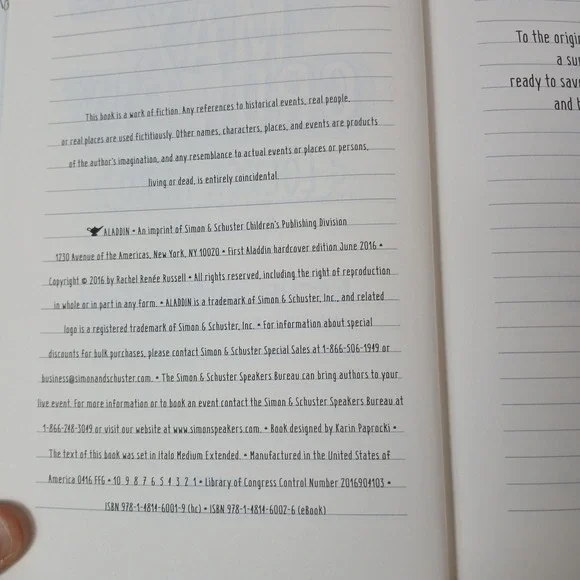 This book is a work of fiction. Any references to historical events, real people,
or real places are used fictitiously. Other names, characters, places, and events are products
of the author's imagination, and any resemblance to actual events or places or persons,
living or dead, is entirely coincidental.
ALADDIN • An imprint of Simon & Schuster Children's Publishing Division
1230 Avenue of the Americas, New York, NY 10020 • First Aladdin hardcover edition June 2016 •
Copyright © 2016 by Rachel Renée Russell • All rights reserved, including the right of reproduction
in whole or in part in any form. • ALADDIN is a trademark of Simon & Schuster, Inc., and related
logo is a registered trademark of Simon & Schuster, Inc. • For information about special
discounts for bulk purchases, please contact Simon & Schuster Special Sales at 1-866-506-1949 or
business@simonandschuster.com. • The Simon & Schuster Speakers Bureau can bring authors to your
live event. For more information or to book an event contact the Simon & Schuster Speakers Bureau at
1-866-248-3049 or visit our website at www.simonspeakers.com. • Book designed by Karin Paprocki •
The text of this book was set in Italo Medium Extended. • Manufactured in the United States of
America 0416 FFG • 10 9 8 7 6 5 4 3 2 1 • Library of Congress Control Number 2016904103 •
ISBN 978-1-4814-6001-9 (hc) • ISBN 978-1-4814-6002-6 (eBook)
To the origin
a su
ready to sav
and